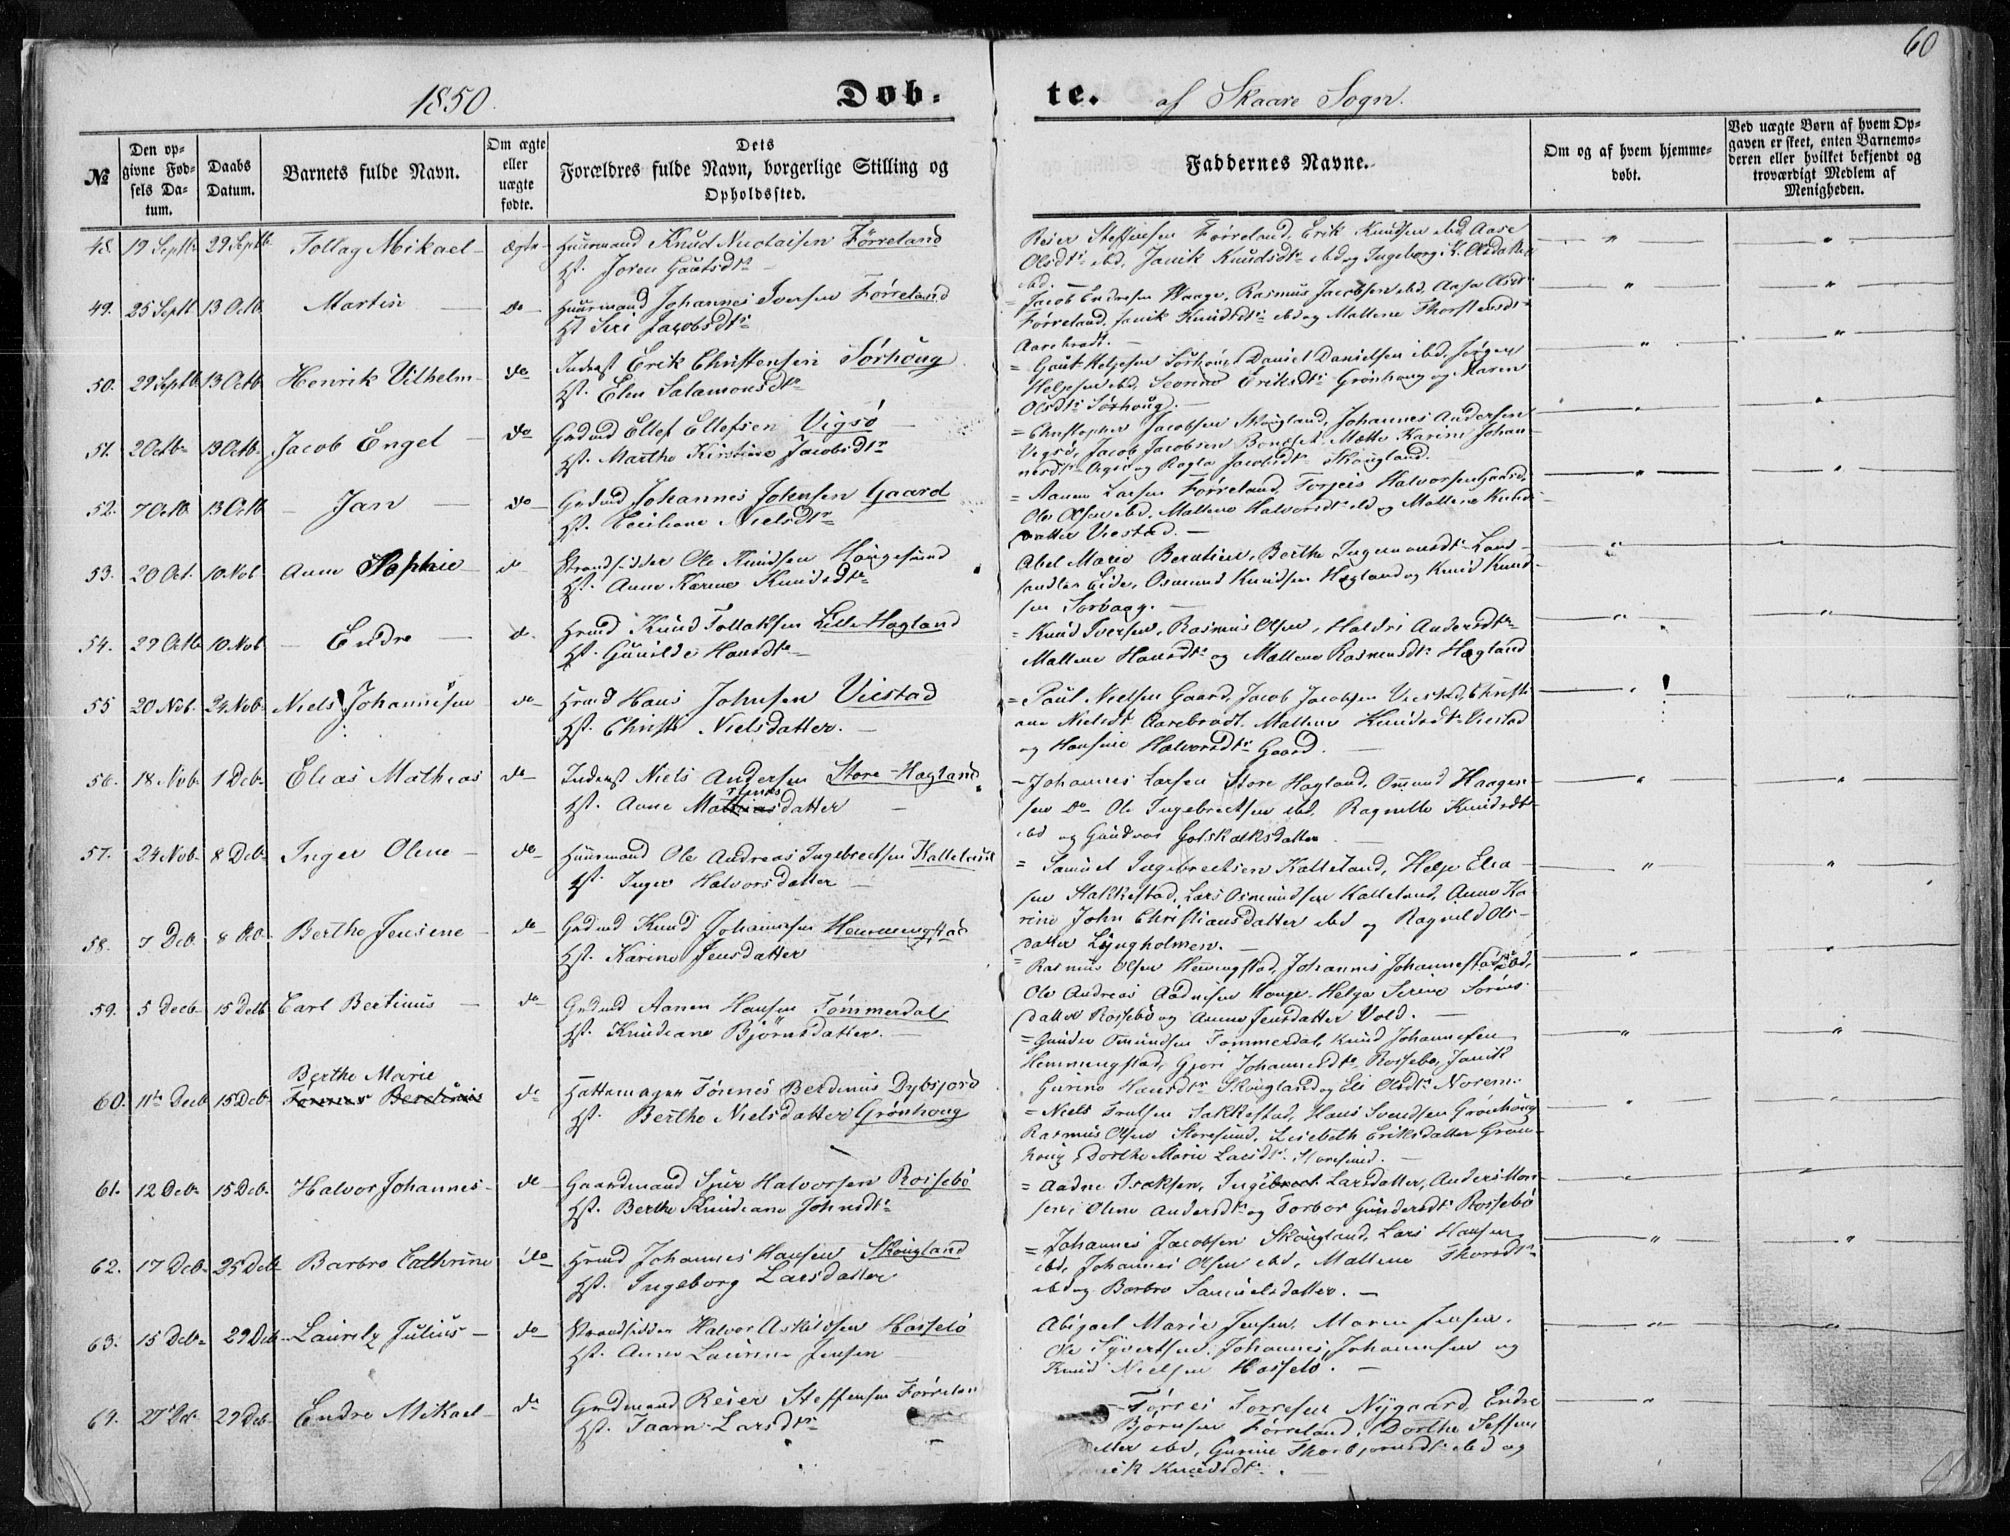 60
1850.
Døb-
te.
af Skaare Sogn.
№
Den op-
givne Fød-
sels Da-
tum.
Daabs
Datum.
Barnets fulde Navn.
Om ægte
eller
uægte
fødte.
Dets
Forældres fulde Navn, borgerlige Stilling og
Opholdssted.
Faddernes Navne.
Om og af hvem hjemme-
døbt.
Ved uægte Børn af hvem Op-
gaven er skeet, enten Barnemo-
deren eller hvilket bekjendt og
troværdigt Medlem af
Menigheden.
48. 19 Septb 29 Septb Tollag Mikael ægte Huusmand Knud Nicolaisen Førreland
Hst. Joren Gautsdtr
Reier Steffensen Førreland, Erik Knudsen ibd, Aase
Olsdtr ibd, Janik Knudsdtr ibd og Ingeborg K. Olsdatter
ibd.
49. 25 Septb 13 Octb Martin do Huusmand Johannes Iversen Førreland
Hst Siri Jacobsdtr
Jacob Endresen Waage, Rasmus Jacobsen ibd, Aasa Olsdtr
Førreland, Janik Knudsdtr ibd og Mallene Thorstensdtr
Aarebrodt.
50. 29 Septb 13 Octb Henrik Vilhelm do Inderst Erik Christensen Sørhoug
Hst. Elen Salamonsdtr
Gaut Heljesen Sørhoug, Daniel Danielsen ibd, Jørgen
Heljesen ibd, Severine Eriksdtr Grønhoug og Maren
Olsdtr Sørhoug.
51. 2 Octb 13 Octb Jacob Engel do Grdmd Ellef Ellefsen Vigsø
Hst. Marthe Kirstine Jacobsdtr
Christopher Jacobsen Skougland, Johannes Andersen
Vigsø, Jacob Jacobsen Mætte Karine Johan-
nesdtr Vigsø og Ragla Jacobsdtr Skougland.
52. 7 Octb 13 Octb Jan do Grdmd Johannes Johnsen Gaard
Hst. Ceciliane Nielsdtr
Aanen Larsen Førreland, Torjeis Halvorsen Gaard,
Ole Olsen ibd, Mallene Halvorsdtr ibd og Mallene Knuds-
datter Viestad.
53. 20 Oct. 10 Nob Anne Sophie do Strandsidder Ole Knudsen Hougesund
Hst. Anne Karine Knudsdtr
Abel Marie Berentsen, Berthe Ingemonsdtr
Eide, Osmund Knudsen Hagland og Knud Knud-
sen Sørhaag.
54. 29 Octb 10 Nob Endre do Grmd Knud Tollaksen Lille Hagland
Hst. Gunilde Hansdtr
Knud Iversen, Rasmus Olsen, Haldri Andersdtr
Mallene Hansdtr og Mallene Rasmusdtr Hagland
55 20 Nob. 24 Nob. Niels Johannesen do Grmd Hans Johnsen Viestad
Hst. Christi Nielsdatter.
Paul Nielsen Gaard, Jacob Jacobsen Viestad, Christi-
ane Nielsdt Aarebrodt, Mallene Knudsdtr Viestad
og Hansine Halvorsdtr Gaard.
56. 18 Nob. 1 Deb. Elias Mathias do Inderst Niels Andersen Store-Hagland
Hst. Anne Mathiasdatter
Johannes Larsen Store Hagland, Omund Haagen-
sen Do Ole Ingebrectsen ibd, Ragnille Knudsdtr
ibd og Gundvor Gotskalksdatter
57. 24 Nob 8 Deb Inger Oline do Huusmand Ole Andreas Ingebrectsen Kalleland
Hst. Inger Halvorsdatter
Samuel Ingebrectsen Kalleland, Helje Elia-
sen Stakkestad, Lars Osmundsen Kalleland, Anne Ka-
rine John Christiansdatter ibd og Ragnild Ols-
datter Lyngholmen.
58. 7 Deb 8 Deb Berthe Jensine do Grdmd Knud Johannesen Hemmingstad
Hst. Karine Jensdatter
Rasmus Olsen Hemmingstad, Johannes Johannesen ibd,
Ole Andreas Aadnesen Houge, Helga Serine Sørens-
datter Rossebø og Anne Jensdatter Vold.
59. 5 Decb 15 Decb Carl Bertinus do Grdmd Aanen Hansen Tømmerdal
Hst. Knudiane Bjørnsdatter.
Gunder Omundsen Tommerdal, Knud Johannesen
Hemmingstad, Gjøri Johannesdtr Rossebø, Janik
Gurine Hansdtr Skougland og Eli Olsdtr Norem.
60. 11te Decb 15 Deb Berthe Marie
do Hattemager Tønnes Berdinus Dybsjord
Hst. Berthe Nielsdatter Grønhoug
Niels Trulsen Sakkestad, Hans Svendsen Grønhoug
Rasmus Olsen Storesund, Lisebeth Eriksdatter Grøn-
houg, Dorthe Marie Larsdtr Storesund.
61. 12 Deb 15 Deb Halvor Johannes do Gaardmand Sjur Halvorsen Roissebø
Hst. Berthe Knudiane Johnsdtr
Aadne Isaksen, Ingebrect Larsdatter, Anders Mon-
sen, Oline Andersdtr og Torbor Gundersdtr Rossebø
62. 17 Deb 25 Deb Barbro Cathrine do Grmd Johannes Hansen Skougland
Hst. Ingeborg Larsdatter
Johannes Jacobsen Skougland, Lars Hansen
ibd, Johannes Olsen ibd, Mallene Thorsdtr
ibd og Barbro Samuelsdatter.
63. 15 Deb 29 Deb Lauritz Julius do Strandsidder Halvor Askildsen Hasselø
Hst. Anne Laurine Jensen
Abigael Marie Jensen, Maren Jensen,
Ole Syvertsen, Johannes Johannesen og
Knud Nielsen Hasselø.
64. 27 Deb 29 Deb Endre Mikael do Grdmand Reier Steffensen Førreland
Hst. Taarn Larsdtr
Tørres Torresen Nygaard, Endre
Bjørnsen Førreland, Dorthe Steffens-
datter ibd, Gurine Thorbjørnsdtr ibd og
Janik Knudsdtr